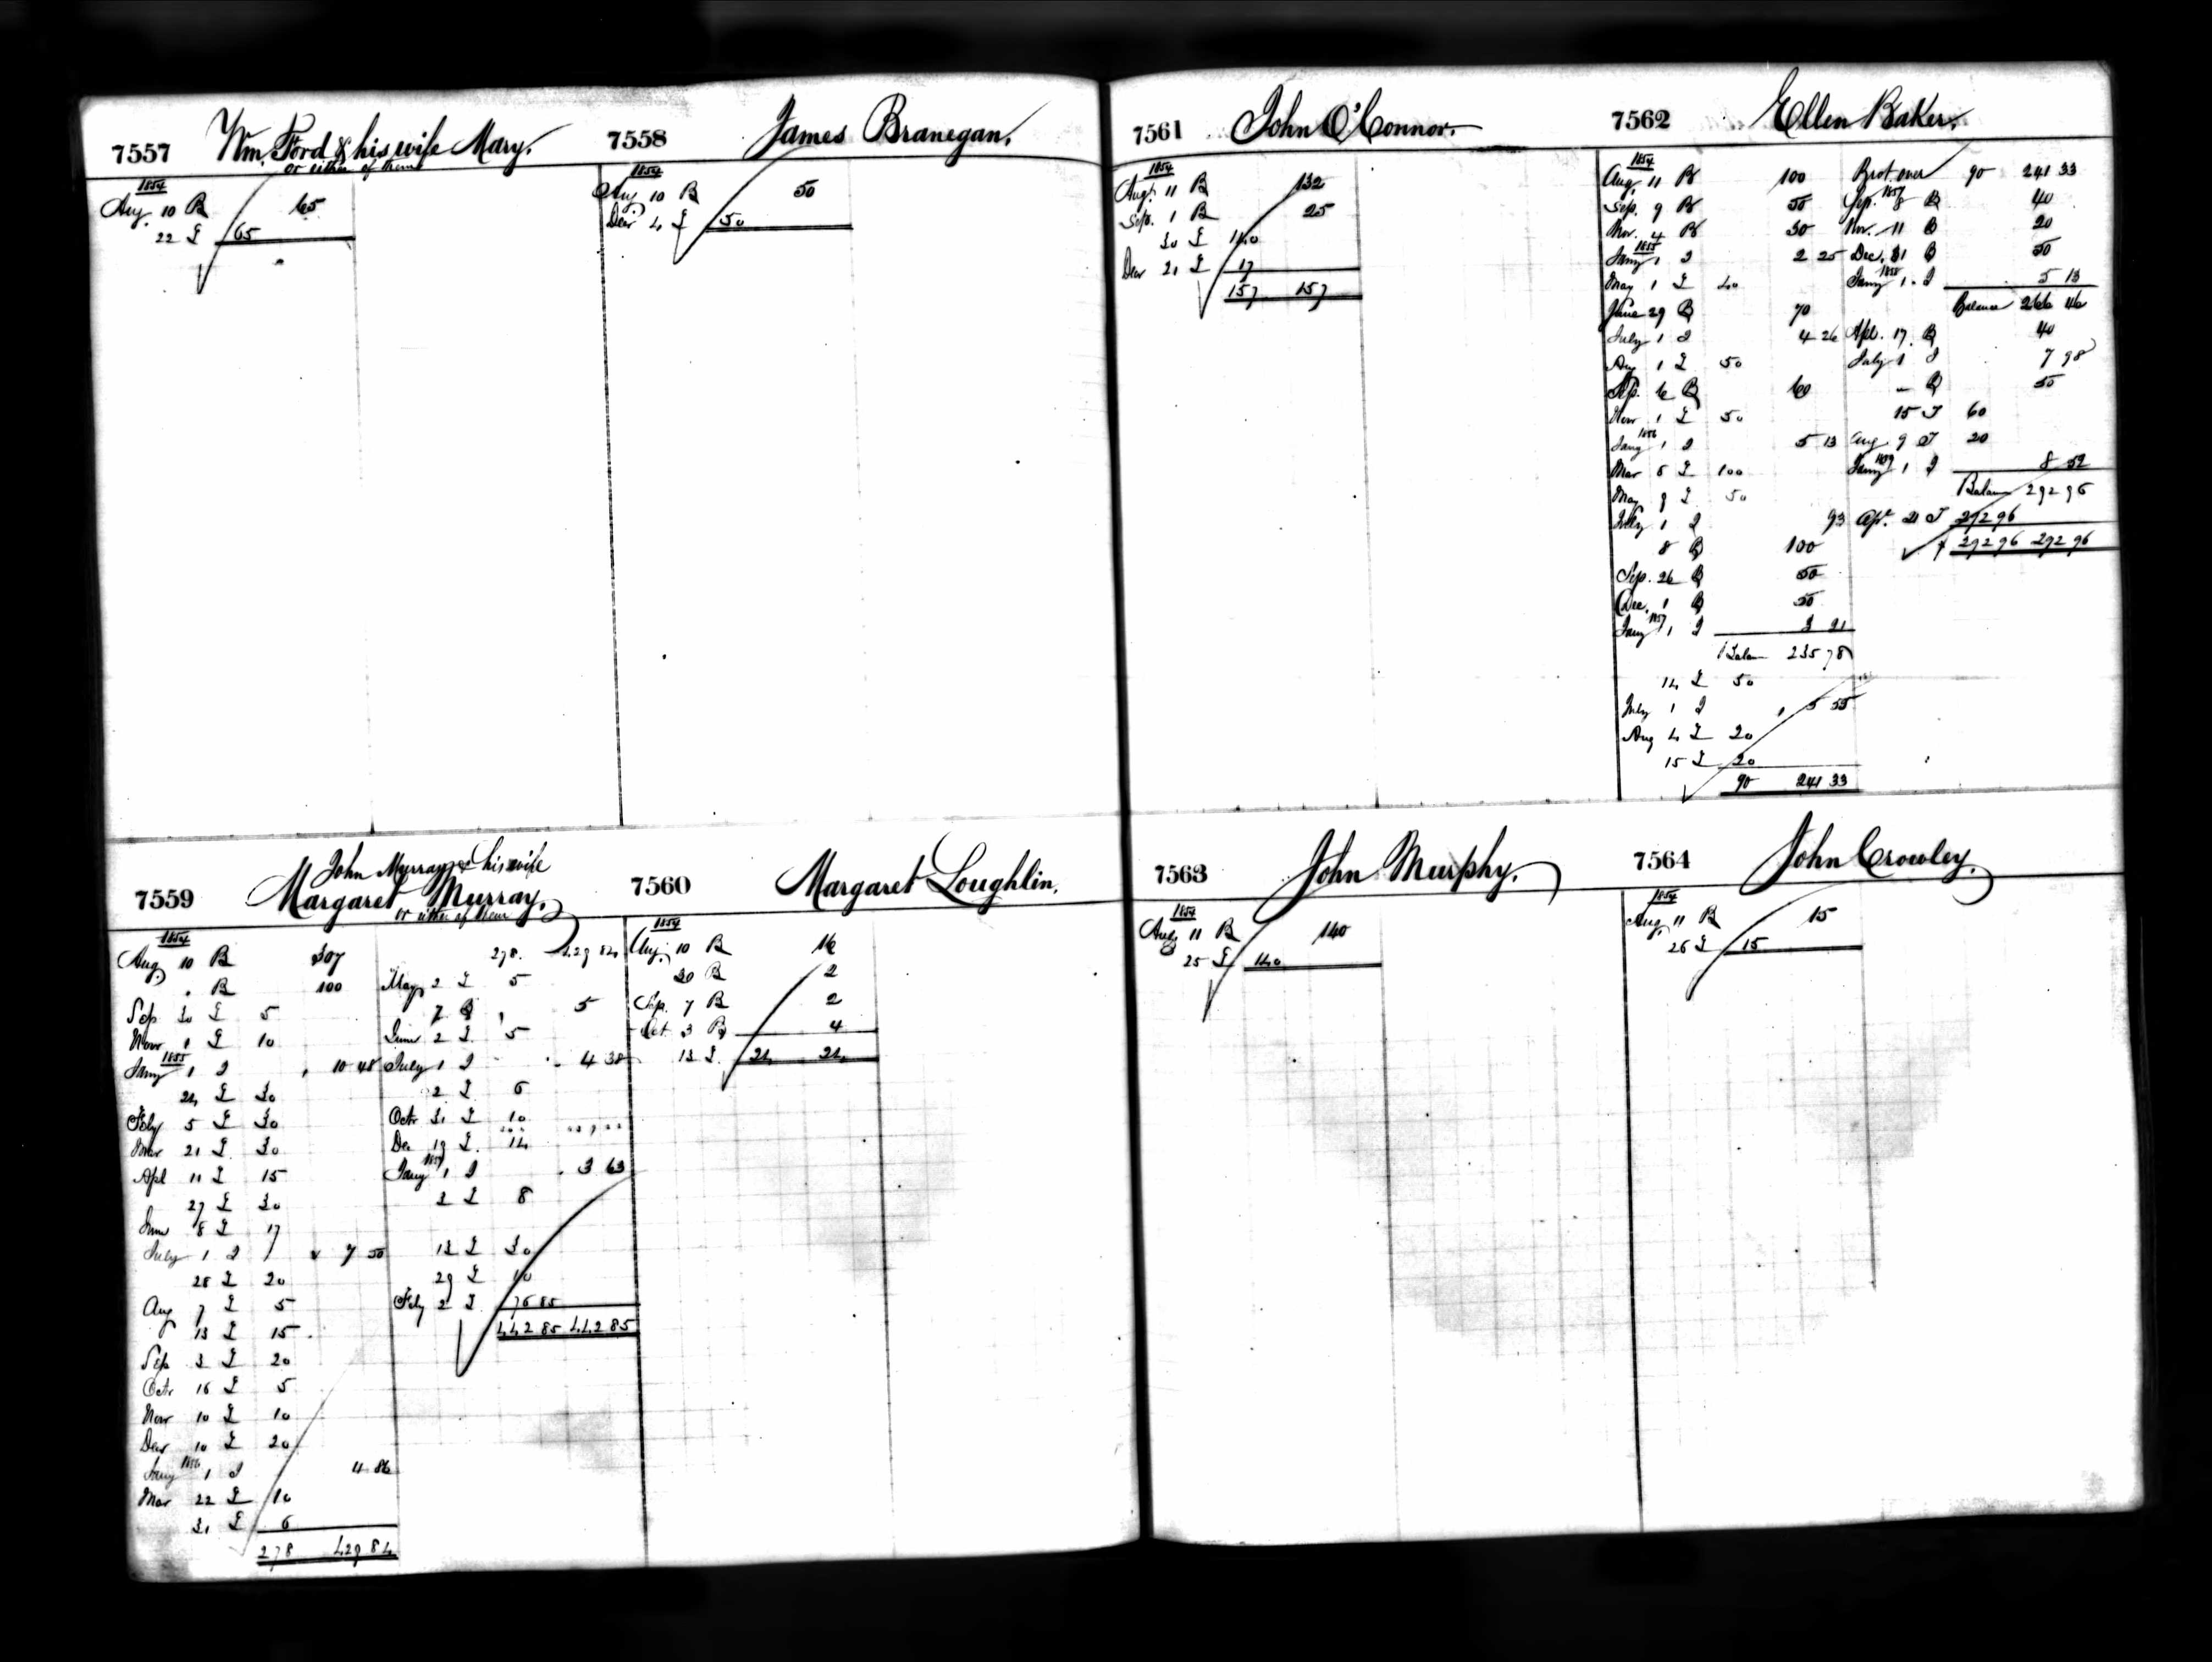 7557 Wm. Ford & his wife Mary.
or either of them
1854
Aug. 10 B 65
22 L 65
7558 James Branegan.
1854
Aug. 10 B 50
Decr 4 L 50
7559 John Murray & his wife
Margaret Murray.
or either of them
1854
Aug. 10 B 307
. B 100
Sep 30 L 5
Novr 1 L 10
1855
Jany 1 I 10 48
24 L 30
Feby 5 L 30
Mar 21 L 30
Apl 11 L 15
27 L 30
June 8 L 17
July 1 I 7 50
28 L 20
Aug 7 L 5
13 L 15
Sep 3 L 20
Octr 16 L 5
Novr 10 L 10
Decr 10 L 20
1856
Jany 1 I 4 86
Mar 22 L 10
31 L 6
278 429 84
278. 429 84
May 2 L 5
7 B 5
June 2 L 5
July 1 I 4 38
2 L 6
Octr 31 L 10
Dec 19 L 14
1857
Jany 1 I 3 63
2 L 8
13 L 30
29 L 10
Feby 2 L 76 85
442 85 442 85
7560 Margaret Loughlin.
1854
Aug. 10 B 16
30 B 2
Sep. 7 B 2
Oct. 3 B 4
13 L 24 24
7561 John O'Connor.
1854
Augt. 11 B 132
Sep. 1 B 25
30 L 140
Decr 21 L 17
157 157
7562 Ellen Baker.
1854
Aug. 11 B 100
Sep. 9 B 50
Nov. 4 B 30
1855
Jany 1 I 2 25
May 1 L 40
June 29 B 70
July 1 I 4 26
Aug 1 L 50
Sep. 6 B 60
Novr 1 L 50
1856
Jany 1 I 5 13
Mar 5 L 100
May 9 L 50
July 1 I 93
8 B 100
Sep. 26 B 50
Dec. 1 B 50
1857
Jany 1 I 3 21
Balan 235 78
14 L 50
July 1 I 5 55
Aug 4 L 20
15 L 20
90 241 33
Brot over 90 241 33
1857
Sep. 8 B 40
Nov. 11 B 20
Dec. 31 B 50
1858
Jany 1. I 5 13
Balance 266 46
Apl. 17. B 40
July 1 I 7 98
— B 50
15 T 60
Aug. 9 T 20
1859
Jany 1 I 8 52
Balan 292 96
Apr. 21 T 292 96
292 96 292 96
7563 John Murphy.
1854
Aug. 11 B 140
25 L 140
7564 John Crowley.
1854
Aug. 11 B 15
26 L 15